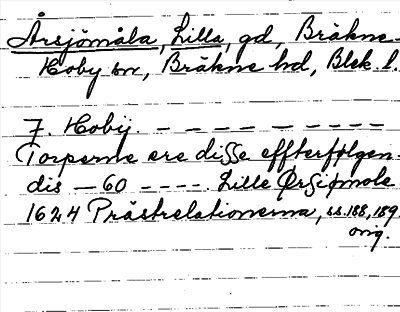 Årsjömåla, Lilla, gd, Bräkne-
Hoby sn, Bräkne hd, Blek. l.
J. Hobÿ. – – – – – – – – –
Torperne ere disse effterfølgen-
dis – 60 – – – –. Lille Ørsiømole
1624 Prästrelationerna, ss. 188, 189.
orig.